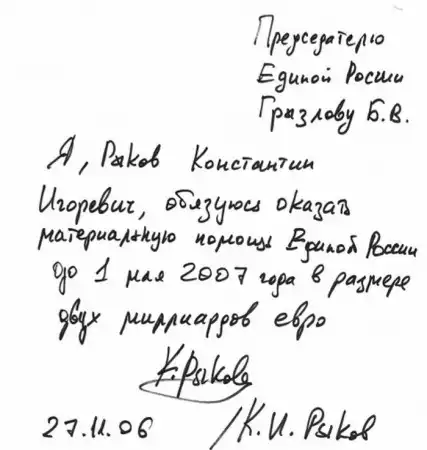 Председателю
Единой России
Грызлову Б.В.
Я, Рыков Константин
Игоревич, обязуюсь оказать
материальную помощь Единой России
до 1 мая 2007 года в размере
двух миллиардов евро
К.Рыков
27.11.06 /К.И. Рыков